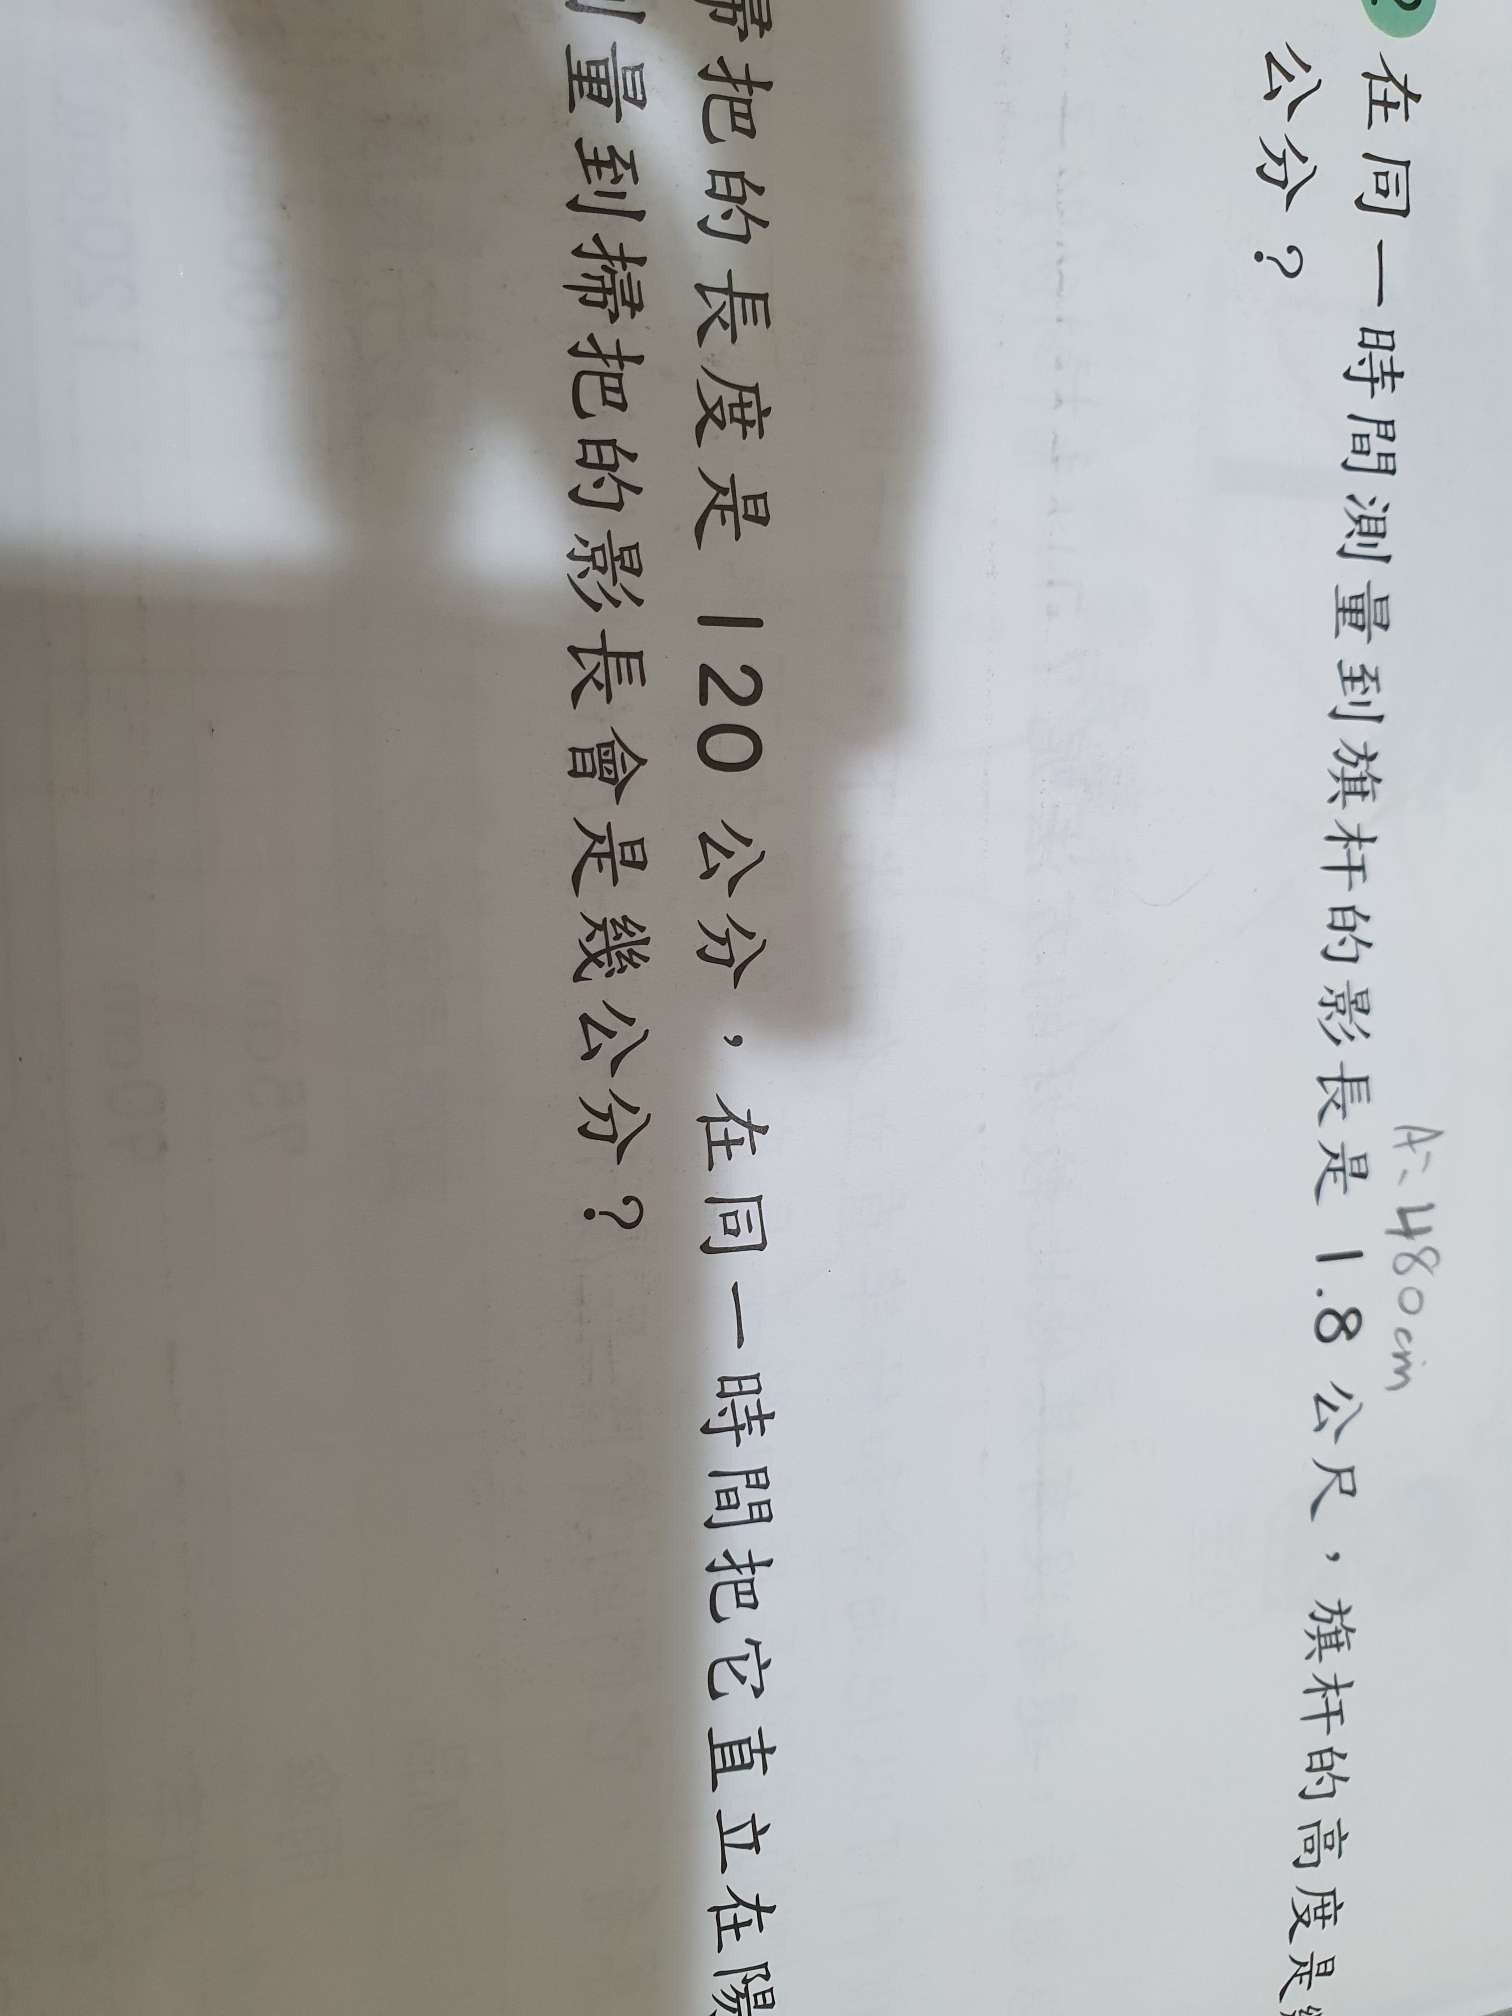 A：480cm
2 在同一時間測量到旗杆的影長是 1.8 公尺，旗杆的高度是
公分？
帚把的長度是 120 公分，在同一時間把它直立在陽
量到掃把的影長會是幾公分？